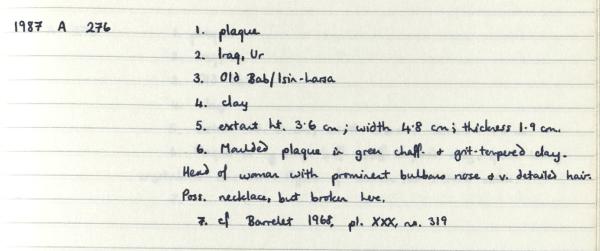 1987 A 276 1. plaque
2. Iraq, Ur
3. Old Bab/Isin-Larsa
4. clay
5. extant ht. 3.6 cm; width 4.8 cm; thickness 1.9 cm.
6. Moulded plaque in green chaff- & grit-tempered clay.
Head of woman with prominent bulbous nose & v. detailed hair.
Poss. necklace, but broken here.
7. cf Barrelet 1968, pl. XXX, no. 319